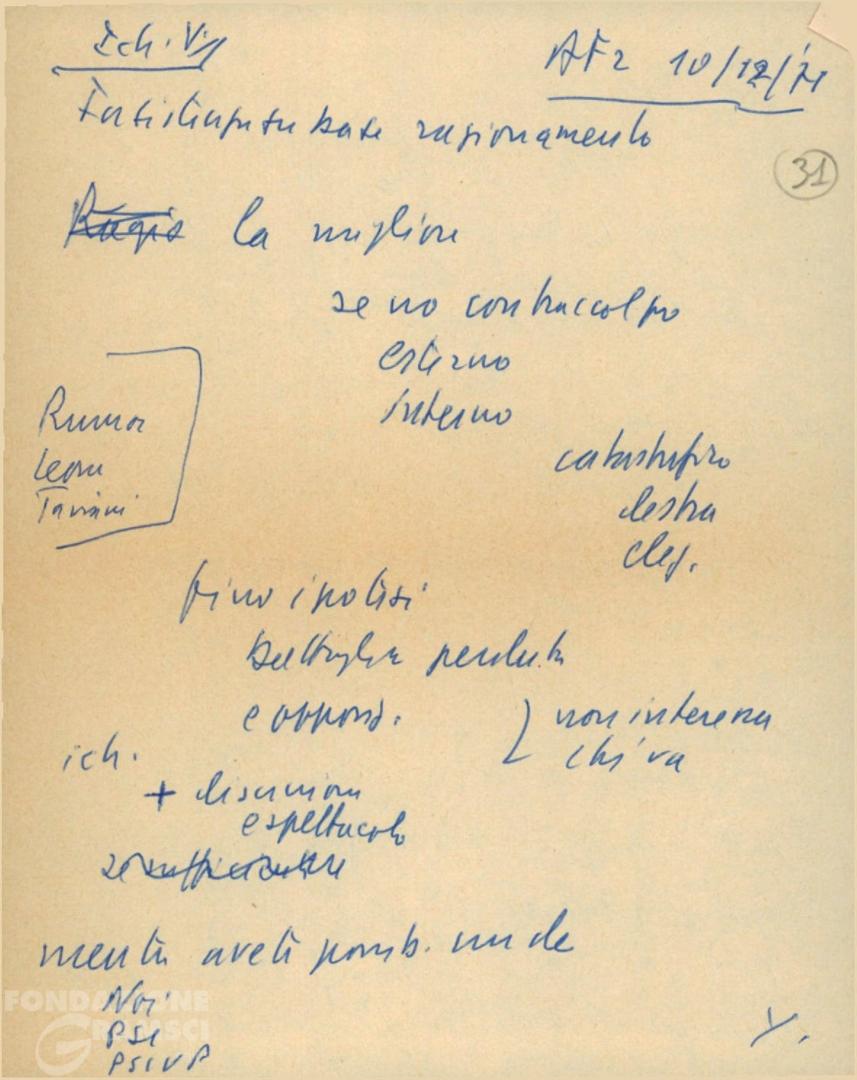 AF2 10/12/71
base ragionamento
31
la migliore
se no contraccolpo
esterno
interno
Rumor
Leone
Taviani
catastrofico
destra
cleg.
primo ipotesi
battaglia perduta
e opposi.
non interessa
chi va
ich.
+ discussioni
e spettacolo
mentre avete possib. unde
Noi
PSI
PSIUP
FONDAZIONE
GRAMSCI